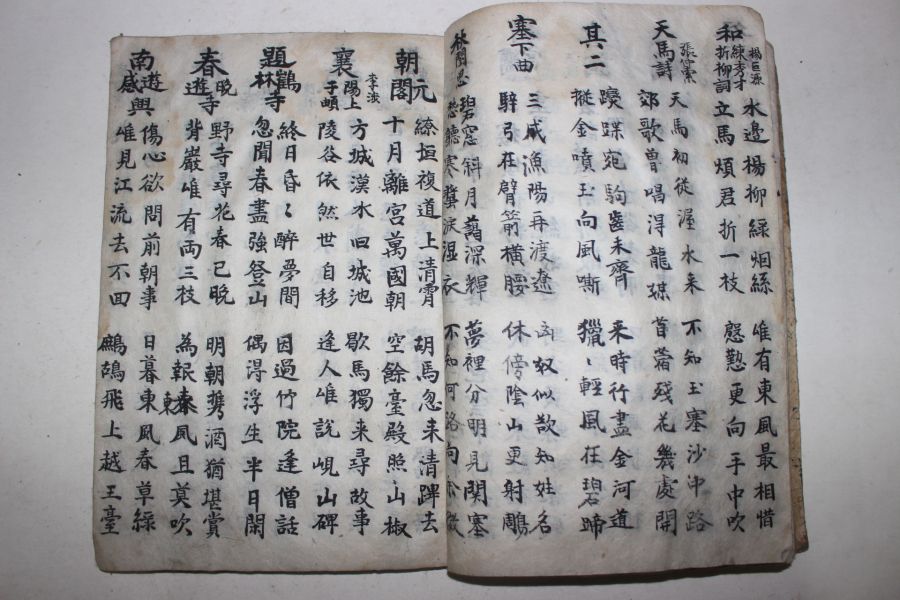 和練秀才折柳詞
楊巨源
水邊楊柳綠烟絲 唯有東風最相惜
立馬煩君折一枝 慇懃更向手中吹
天馬詩
張仲素
天馬初從渥水来 不知玉塞沙中路
郊歌曽唱得龍媒 苜蓿残花幾處開
其二
躞蹀宛駒齒未齊 来時行盡金河道
摐金噴玉向風嘶 獵〻輕風在碧蹄
塞下曲
三戍漁陽再渡遼 凶奴似欲知姓名
騂弓在臂箭橫腰 休傍陰山更射鵰
秋閨思
碧窓斜月藹深輝 夢裡分明見関塞
愁聽寒螿淚湿衣 不知何路向金微
朝元閣
繚垣複道上清霄 胡馬忽来清蹕去
十月離宮萬國朝 空餘臺殿照山椒
襄陽上于頔
李涉
方城漢水旧城池 歇馬獨来尋故事
陵谷依然世自移 逢人唯說峴山碑
題鶴林寺
終日昏〻醉夢間 因過竹院逢僧話
忽聞春盡強登山 偶得浮生半日閑
春晚遊寺
野寺尋花春已晚 明朝携酒猶堪賞
背巖唯有両三枝 為報春風且莫吹
東
南遊感興
傷心欲問前朝事 日暮東風春草綠
唯見江流去不回 鷓鴣飛上越王臺